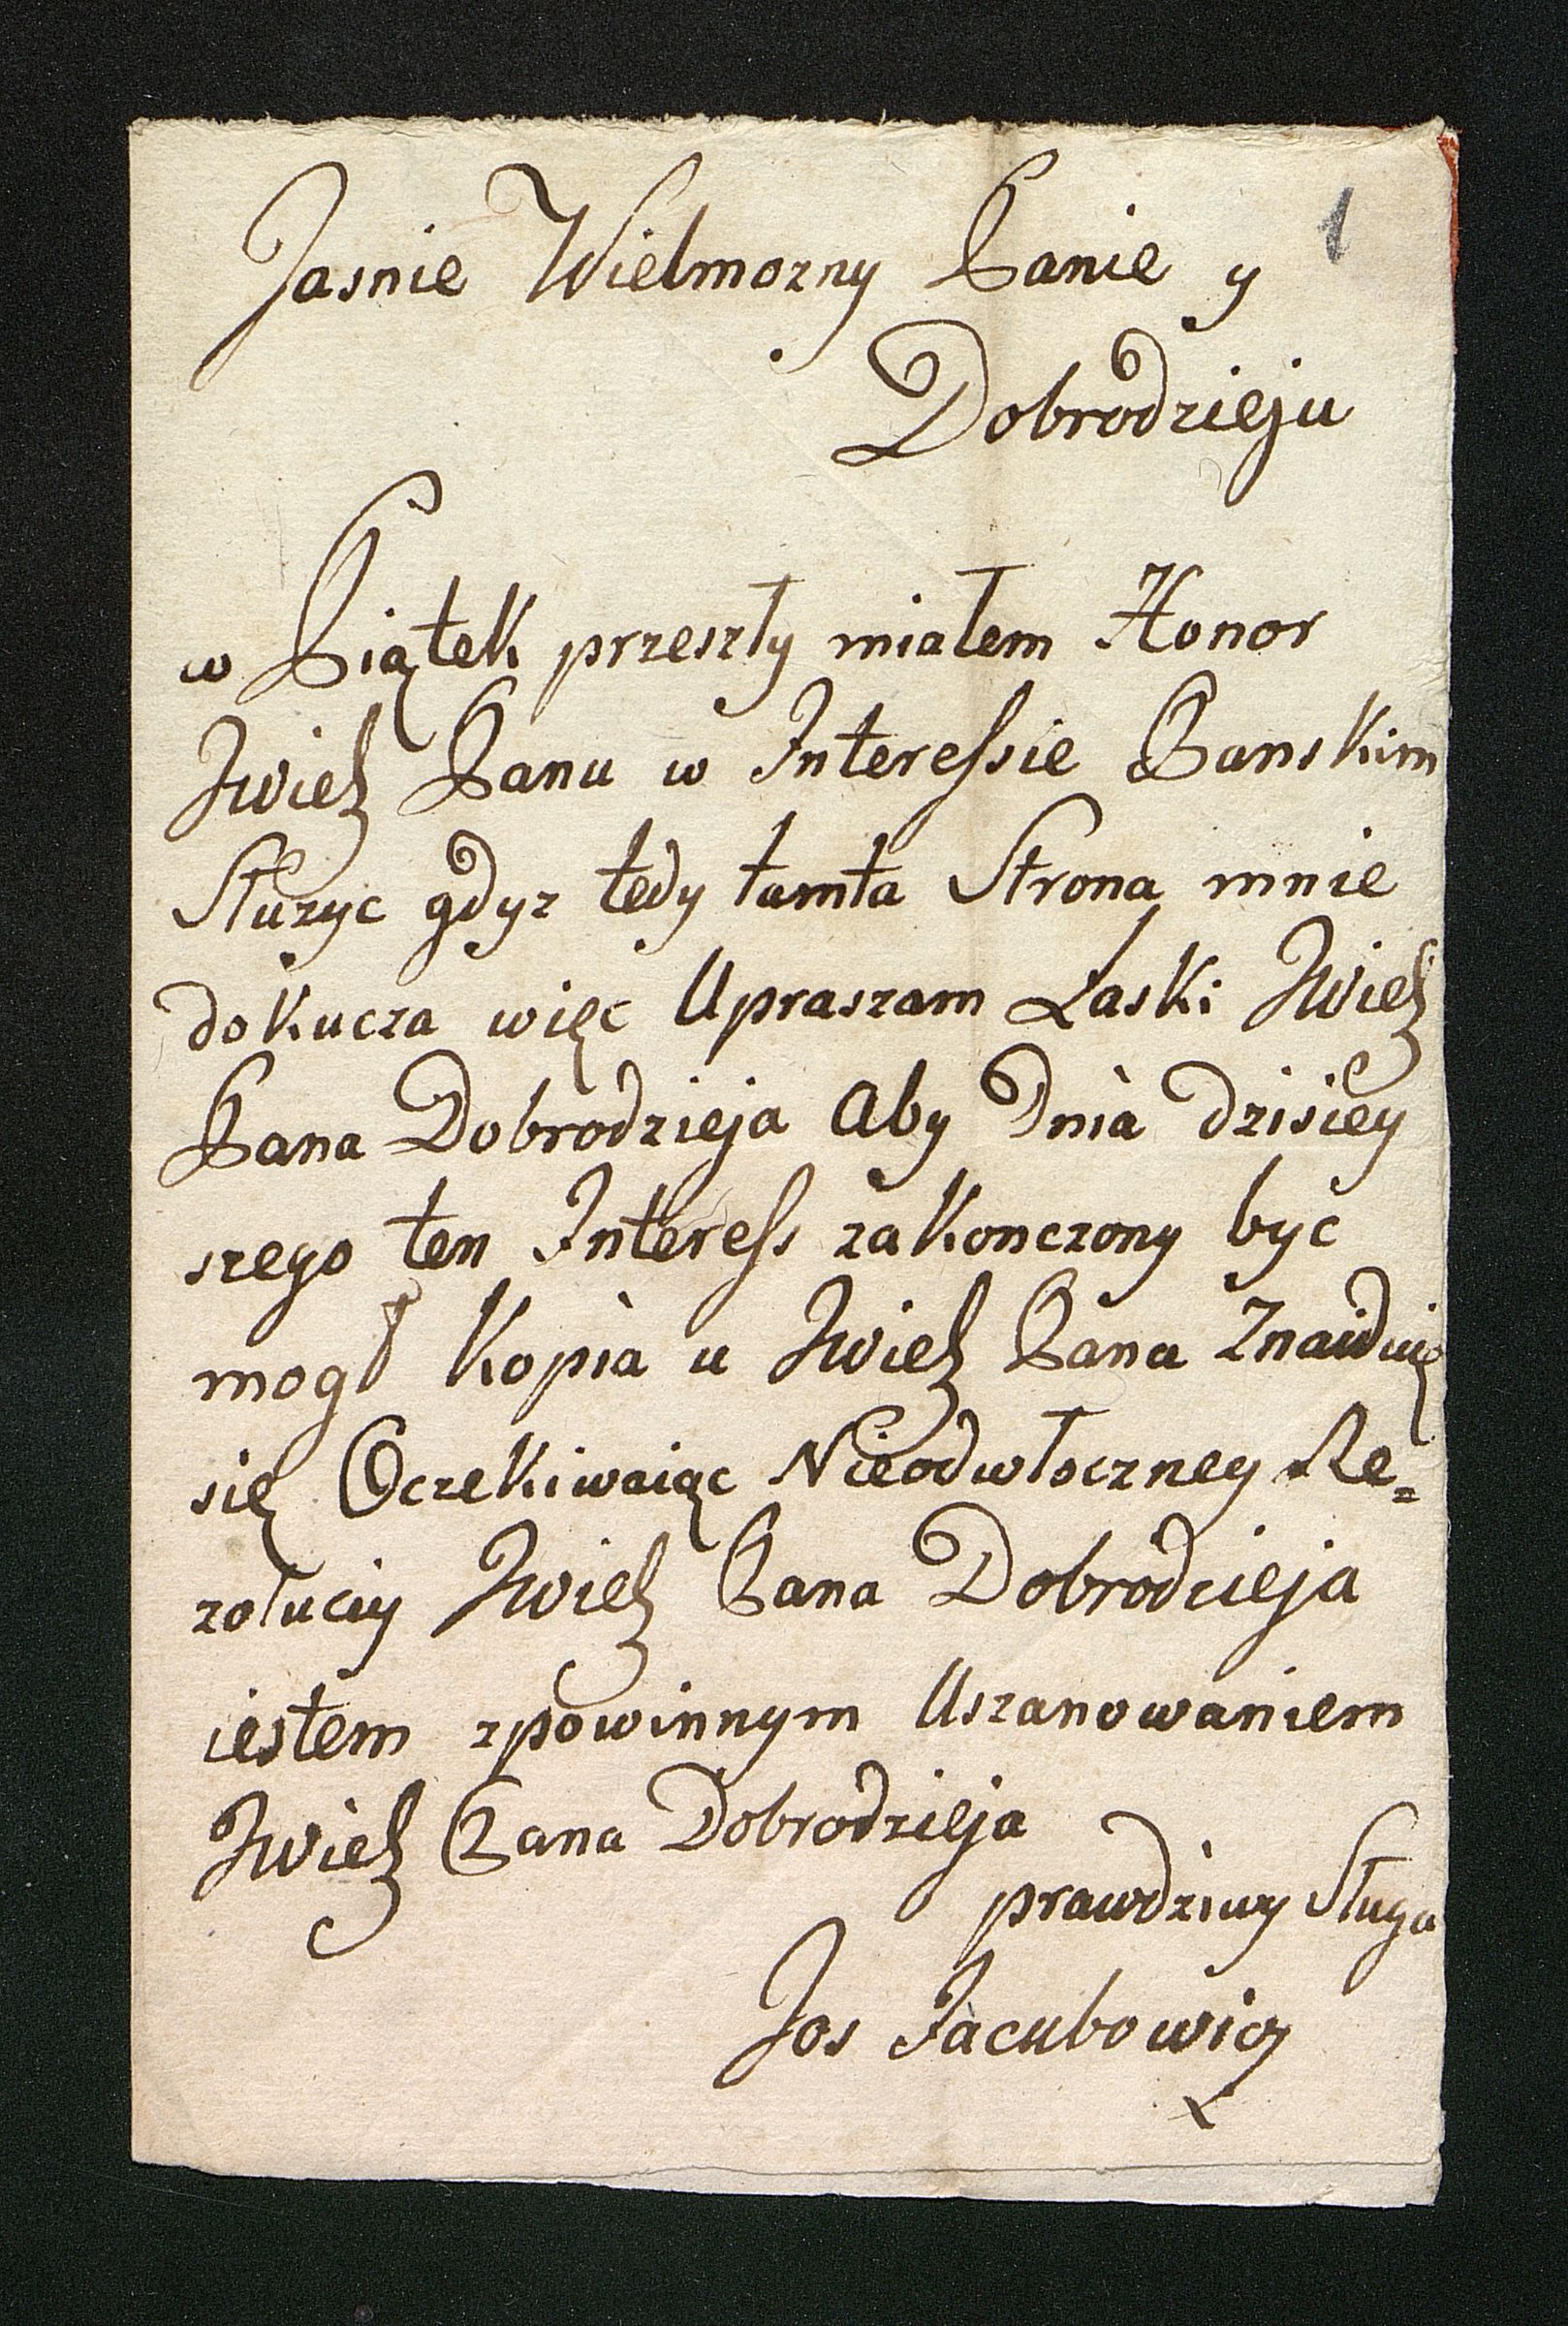 1
Jasnie Wielmozny Panie y
Dobrodzieju
w Piątek przeszły miałem Honor
JWielz Panu w Interessie Panskim
Służyc gdyz tedy tamta Strona mnie
dokucza więc Upraszam Łaski JWielz
Pana Dobrodzieja Aby Dnia dzisiey
szego ten Interess zakonczony byc
mogł Kopia u JWielz Pana Znaiduię
się Oczekiwaiąc Nieodwłoczney Re=
zoluciy JWielz Pana Dobrodzieja
iestem zpowinnym Uszanowaniem
JWielz Pana Dobrodzieja
prawdziwy Sługa
Jos Jacubowicz